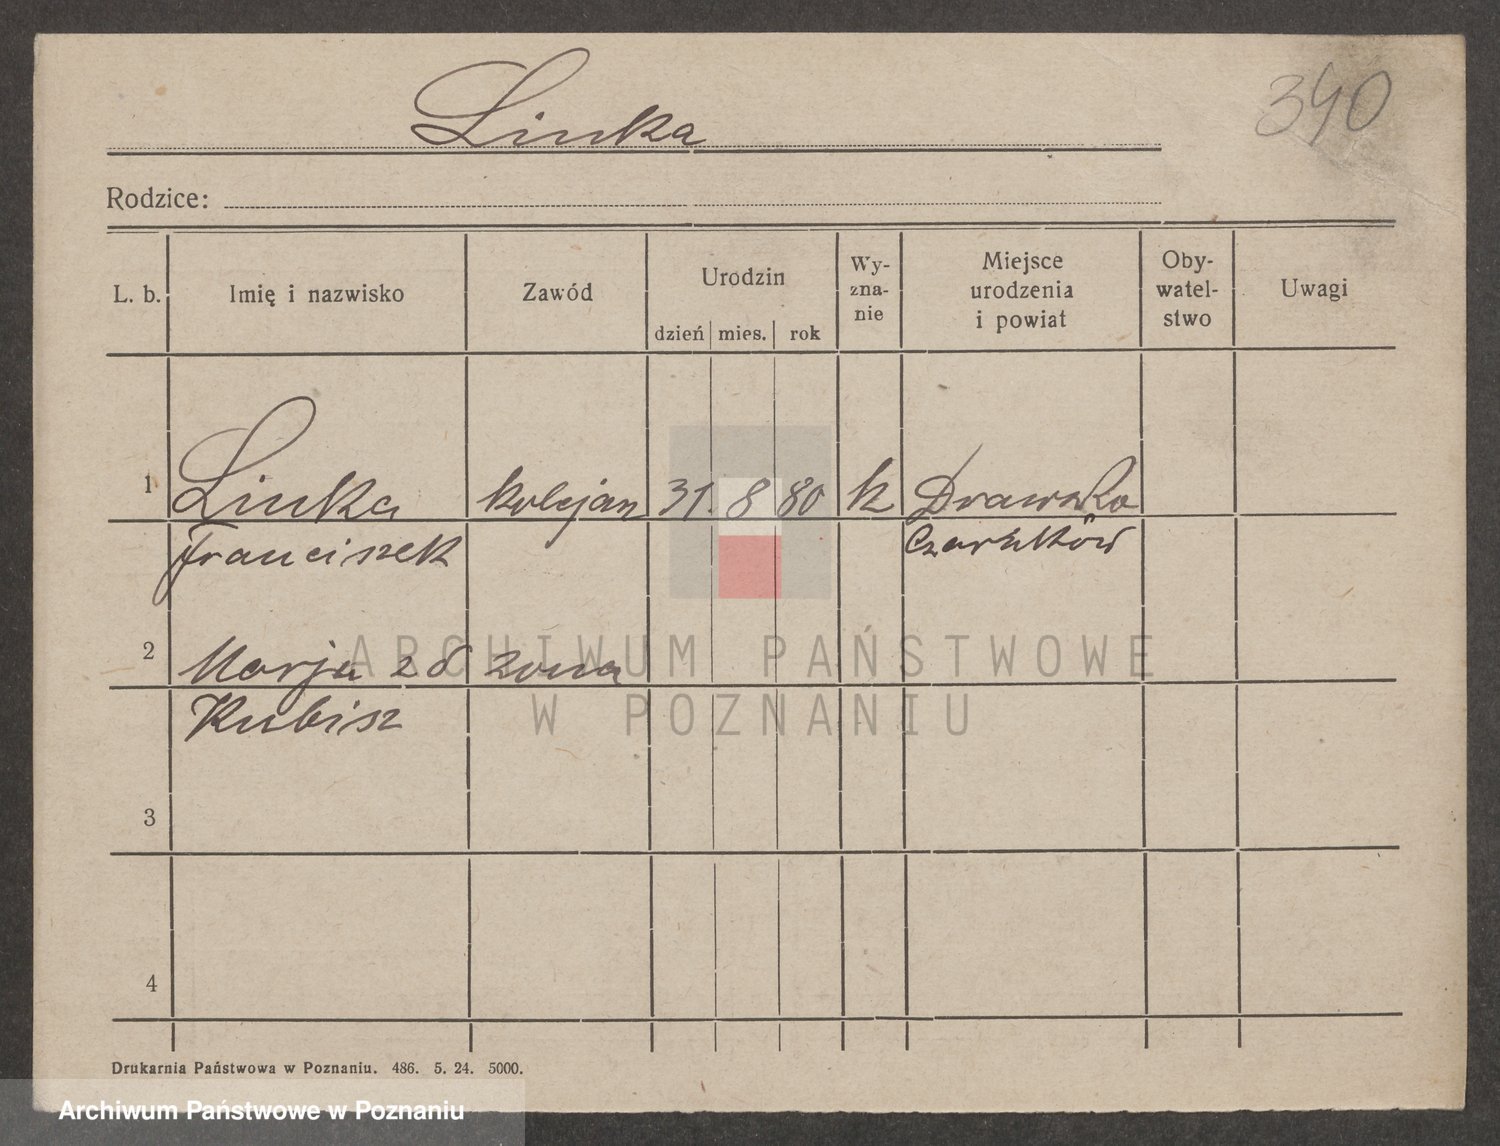 Linka
340
Rodzice:
L. b.
Imię i nazwisko
Zawód
Urodzin
dzień
mies.
rok
Wy-
zna-
nie
Miejsce
urodzenia
i powiat
Oby-
watel-
stwo
Uwagi
1 Linka kolejarz 31. 8 80 k Drawsko
Franciszek Czarnków
2 Marja zd żona
Kubisz
3
4
ARCHIWUM PAŃSTWOWE
W POZNANIU
Drukarnia Państwowa w Poznaniu. 486. 5. 24. 5000.
Archiwum Państwowe w Poznaniu